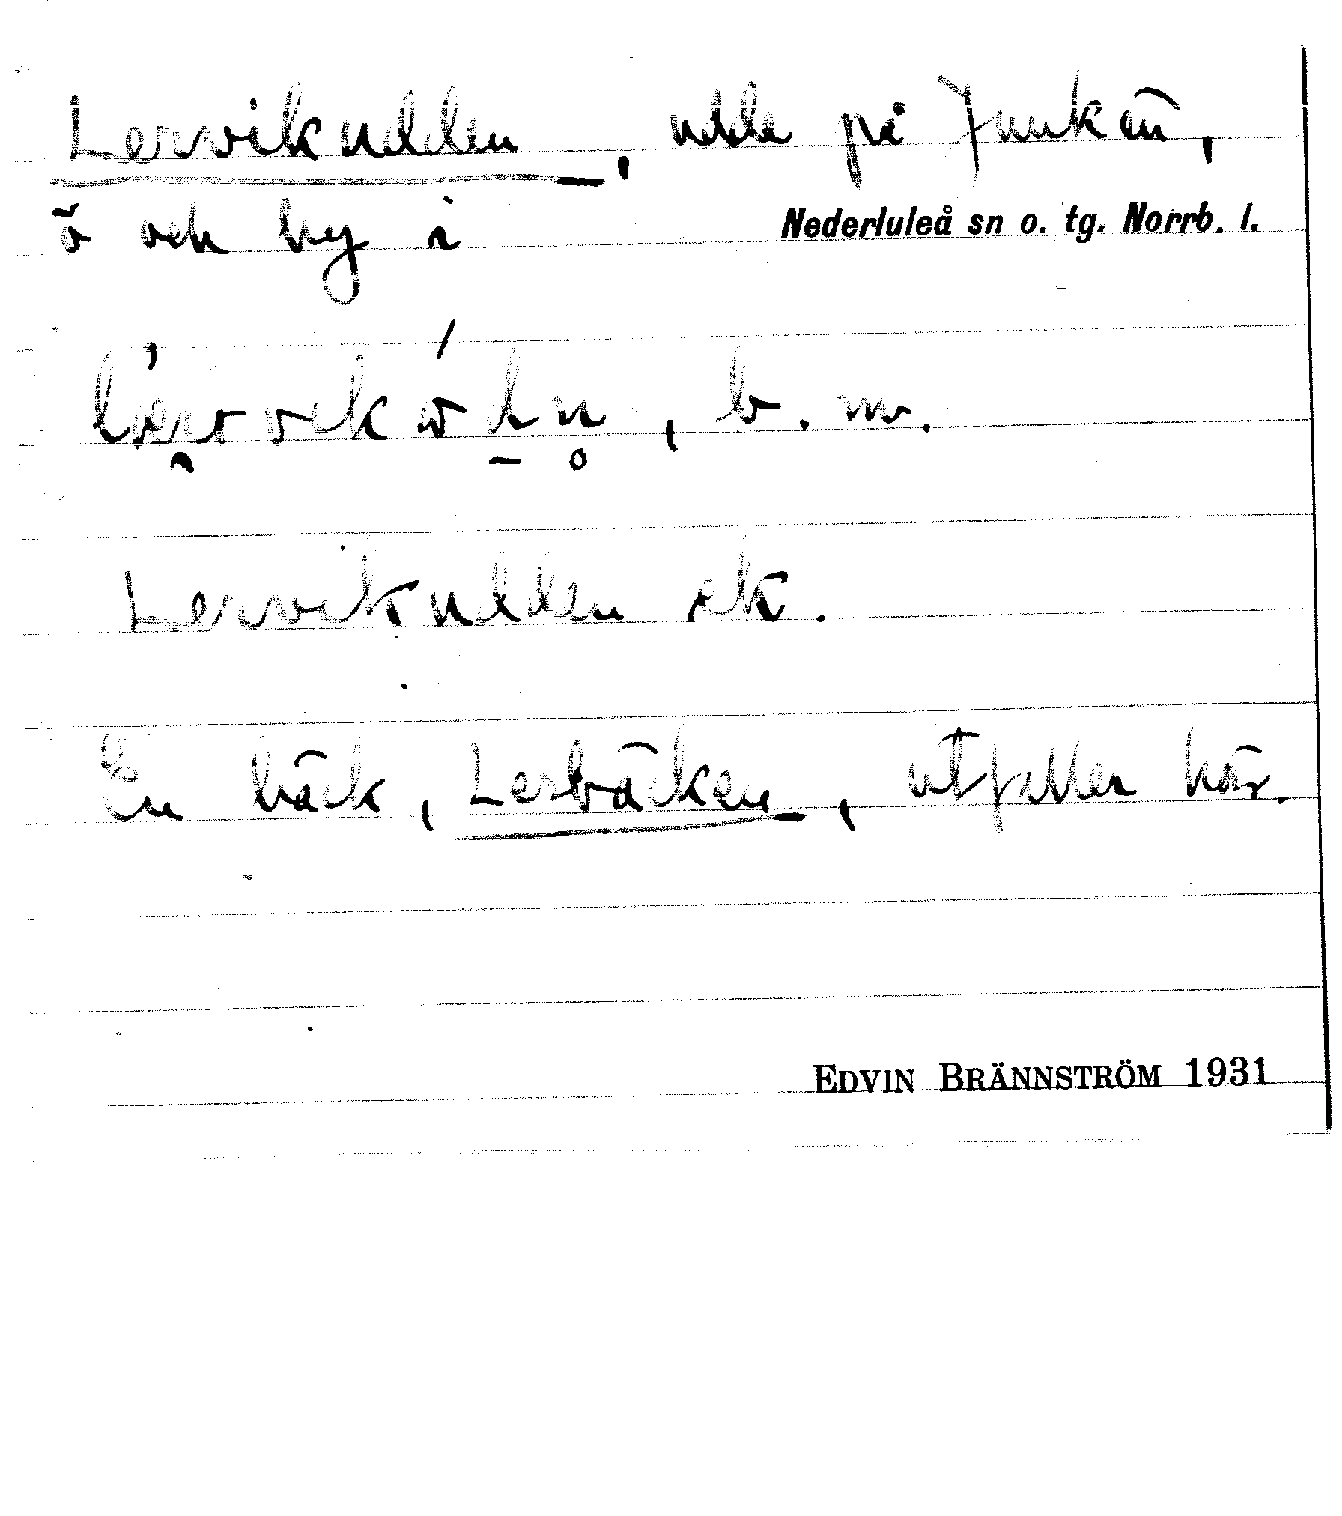 Lervikudden, udde på Junkön,
ö och by i Nederluleå sn o. tg. Norrb. l.
, b. m.
Lervikudden ek.
En bäck, Lerbäcken, utfaller här.
EDVIN BRÄNNSTRÖM 1931